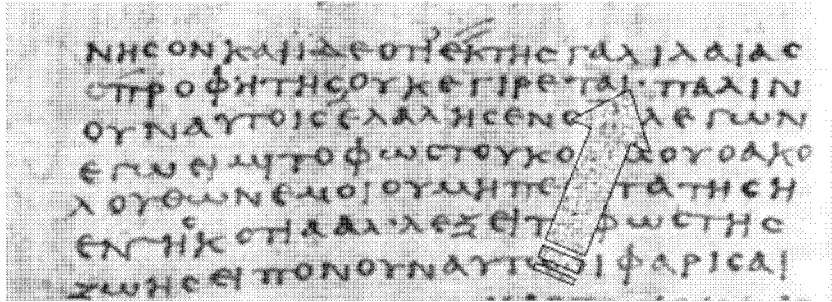 ΝΗϹΟΝΚΑΙΙΔΕΟΤΙΕΚΤΗϹΓΑΛΙΛΑΙΑϹ
ΟΠΡΟΦΗΤΗϹΟΥΚΕΓΙΡΕΤΑΙ·ΠΑΛΙΝ
ΟΥΝΑΥΤΟΙϹΕΛΑΛΗϹΕΝΟ ΛΕΓΩΝ
ΕΓΩΕΙΜΙΤΟΦΩϹΤΟΥΚΟ ΟΥΟΑΚΟ
ΛΟΥΘΩΝΕΜΟΙΟΥΜΗΠΕ ΠΑΤΗϹΗ
ΕΝΤΗϹΚΟΤΙΑΑΛΛΕΞΕΙΤ ΦΩϹΤΗϹ
ΖΩΗϹΕΙΠΟΝΟΥΝΑΥΤΩ ΙΦΑΡΙϹΑΙ